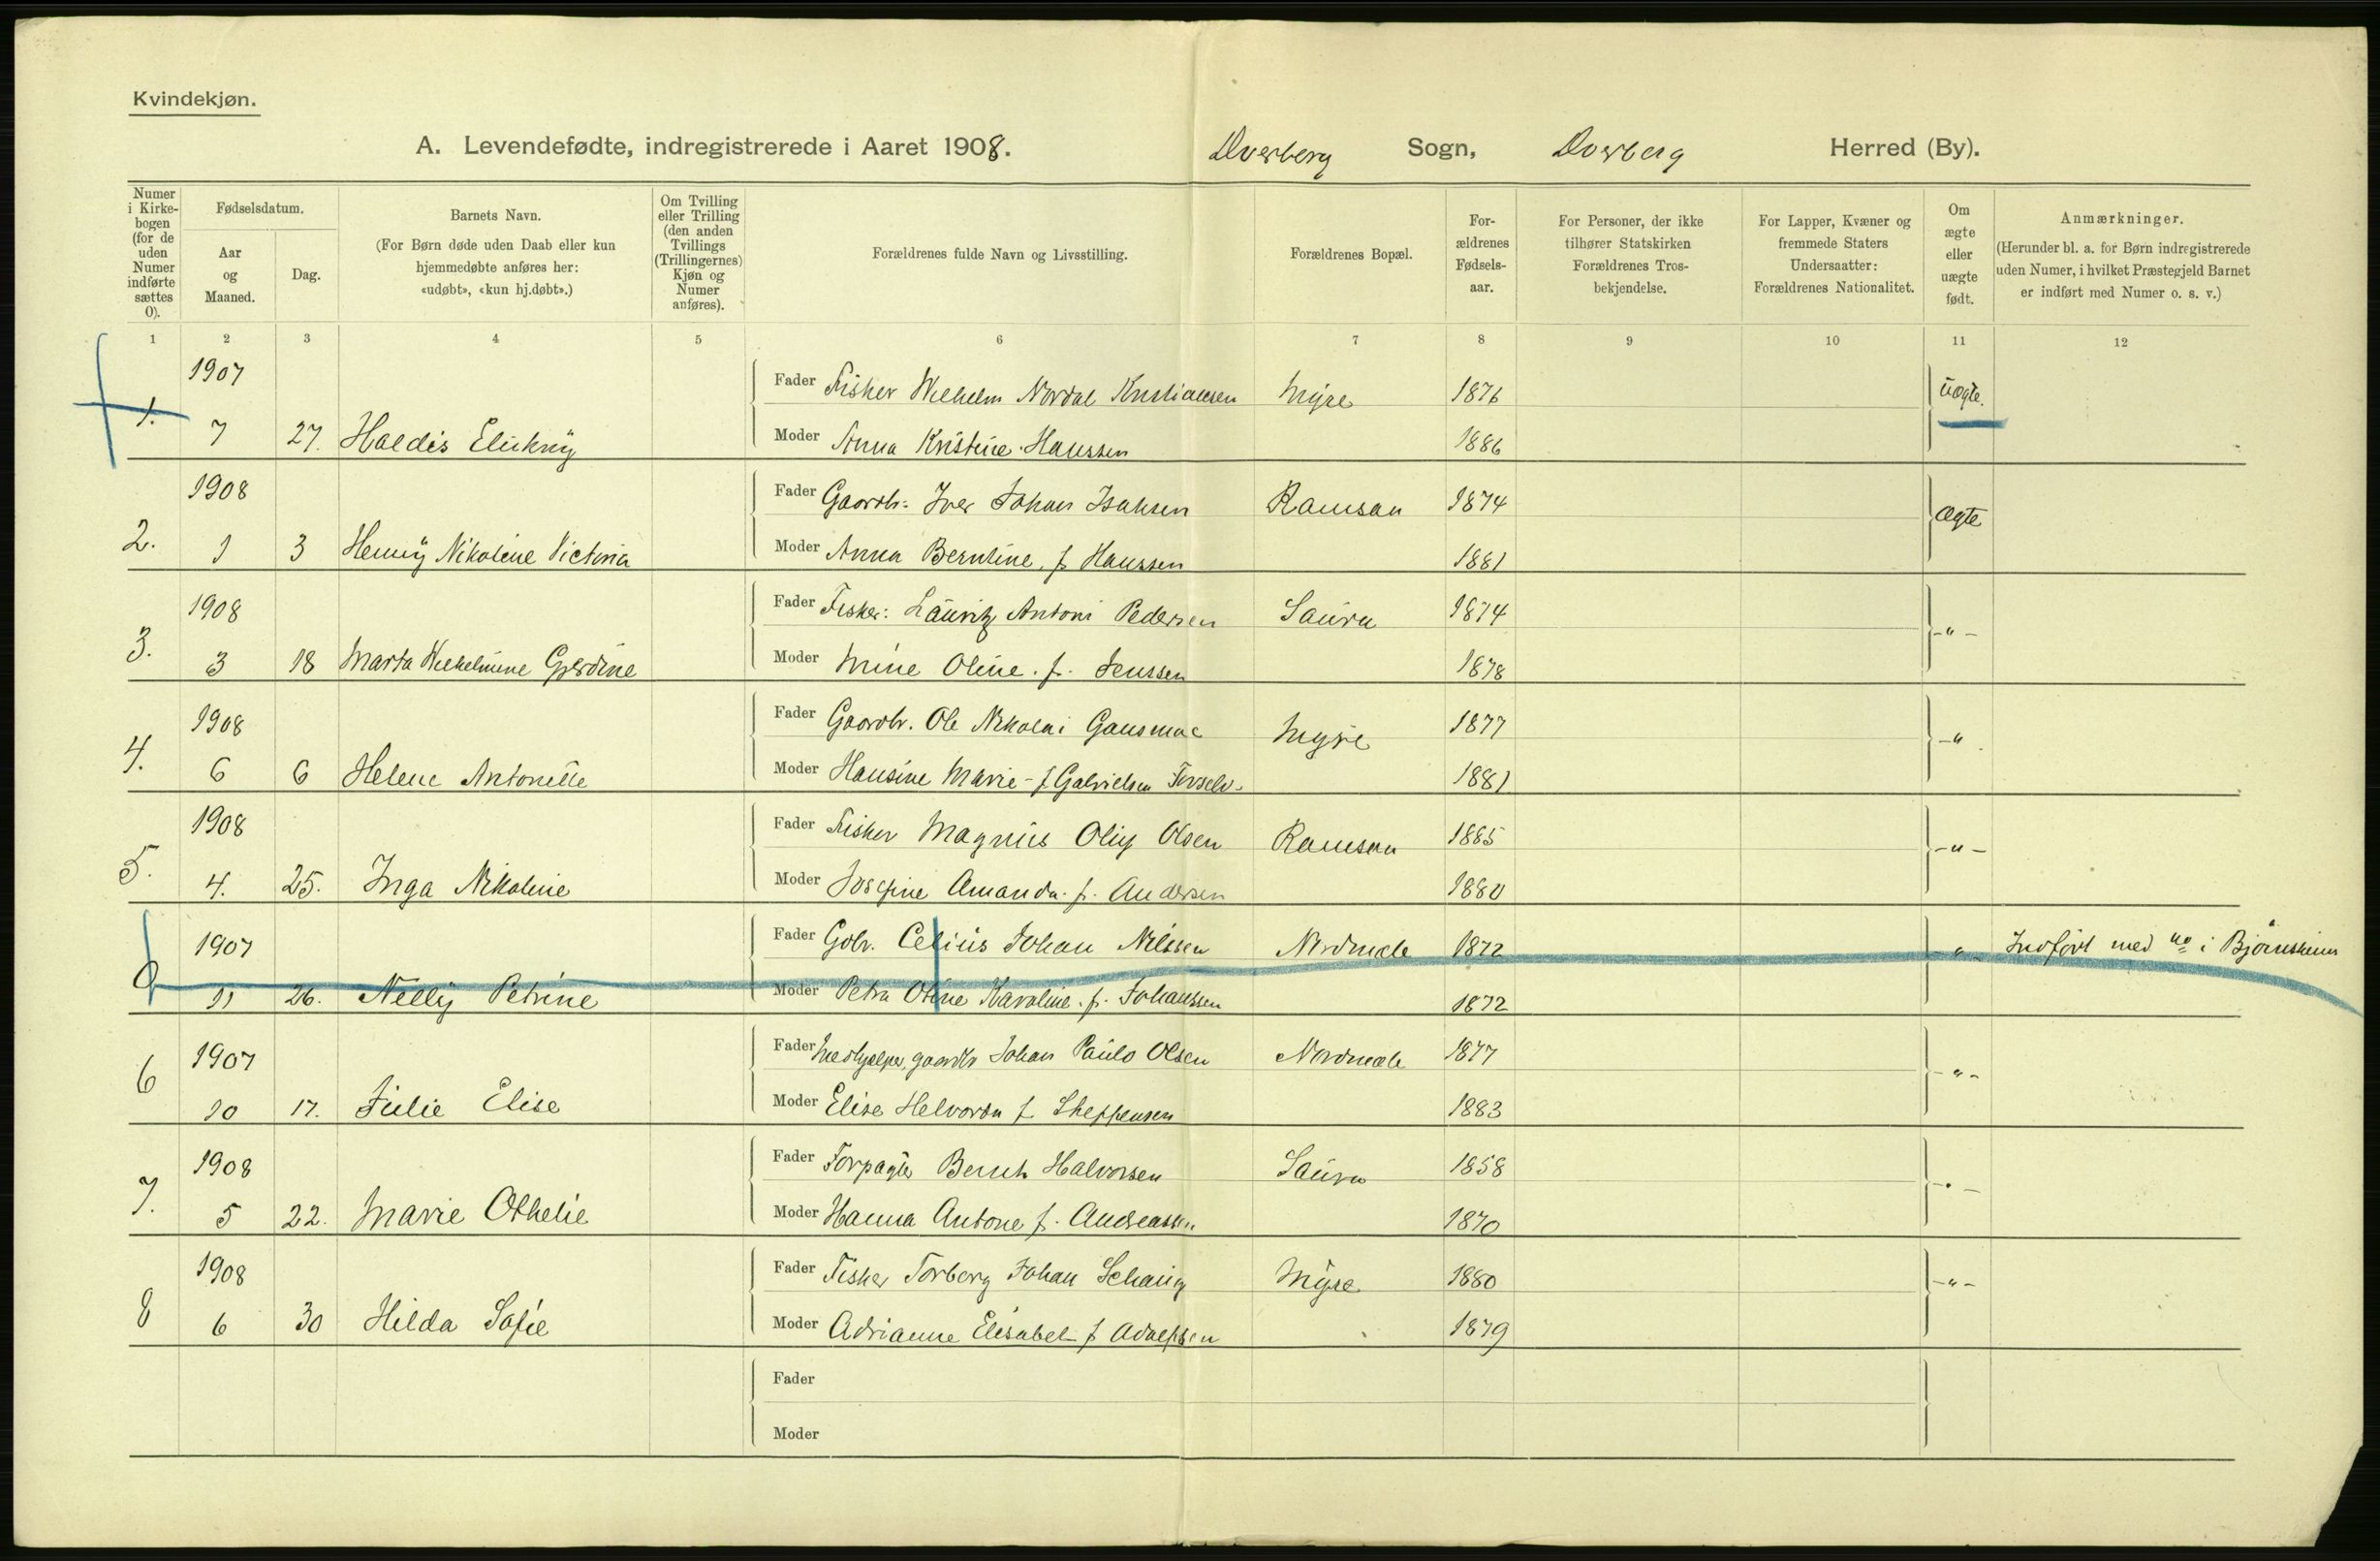 Kvindekjøn.
A. Levendefødte, indregistrerede i Aaret 1908. Dverberg Sogn, Dverberg Herred (By).
Numer i Kirkebogen (for de uden Numer indførte sættes 0).
Fødselsdatum.
Aar og Maaned.
Dag.
Barnets Navn.
(For Børn døde uden Daab eller kun hjemmedøbte anføres her: «udøbt», «kun hj.døbt».)
Om Tvilling eller Trilling (den anden Tvillings (Trillingernes) Kjøn og Numer anføres).
Forældrenes fulde Navn og Livsstilling.
Forældrenes Bopæl.
For-ældrenes Fødsels-aar.
For Personer, der ikke tilhører Statskirken Forældrenes Tros-bekjendelse.
For Lapper, Kvæner og fremmede Staters Undersaatter: Forældrenes Nationalitet.
Om ægte eller uægte født.
Anmærkninger.
(Herunder bl. a. for Børn indregistrerede uden Numer, i hvilket Præstegjeld Barnet er indført med Numer o. s. v.)
1 2 3 4 5 6 7 8 9 10 11 12
1907 Fader Fisker Wilhelm Nordal Kristiansen Myre 1876 uægte.
1. 7 27. Haldis Moder Anna Kristine Hanssen 1886
1908 Fader Gaardbr: Iver Johan Isaksen Ramsaa 1874 ægte
2. 1 3 Henny Nikoline Victoria Moder Anna Berntine f. Hanssen 1881
1908 Fader Fisker: Lauritz Antoni Pedersen Saura 1874 -"-
3. 3 18 Marta Wilhelmine Gjerdine Moder Mine Oline. f. Jenssen 1878
1908 Fader Gaardbr. Ole Nikolai Myre 1877 -"
4. 6 6 Helene Antonette Moder Hansine Marie - f Gabrielsen 1881
1908 Fader Fisker Magnus Oluf Olsen Ramsaa 1885 -"-
5. 4. 25. Inga Nikoline Moder Josefine Amanda. f. Andersen 1880
1907 Fader Gbr. Celius Johan Nilssen Nordmæle 1872 " Indført med no i Bjørnskinn
0 11 26. Nelly Petrine Moder Petra Oline Karoline. f. Johanssen 1872
1907 Fader Medhjælper, gaardbr Johan Paulo Olsen Nordmæle 1877 -"-
6 10 17. Julie Elise Moder Elise Helvorda f Steffensen 1883
1908 Fader Forpagter Bernt Halvorsen Saura 1858 -"-
7. 5 22. Marie Othelie Moder Hanna Antone f. Andreassen 1870
1908 Fader Fisker Torberg Johan Schaug Myre 1880 -"-
8 6 30 Hilda Sofie Moder Adrianne Elisabet f Adolfsen 1879
Fader
Moder